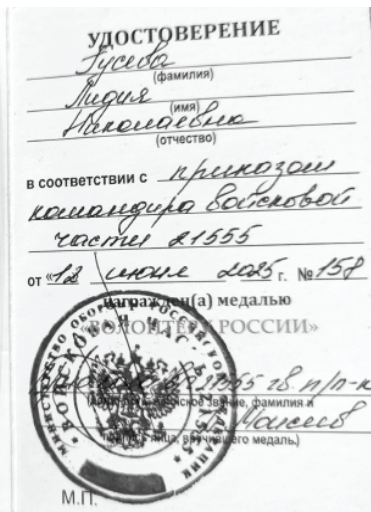 УДОСТОВЕРЕНИЕ
Гусева
(фамилия)
Лидия
(имя)
Николаевна
(отчество)
в соответствии с приказом
командира войсковой
части 21555
от «12 июня 2025 г. № 158
награжден(а) медалью
«ВОЛОНТЕР РОССИИ»
21555 гв. п/п-к
звание, фамилия и
Моисеев
лица, вручившего медаль,)
МИНИСТЕРСТВО ОБОРОНЫ РОССИЙСКОЙ ФЕДЕРАЦИИ
ВОЙСКОВАЯ ЧАСТЬ 21555
М.П.